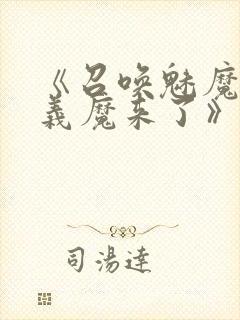 《召唤魅魔
義魔来了》
司湯達